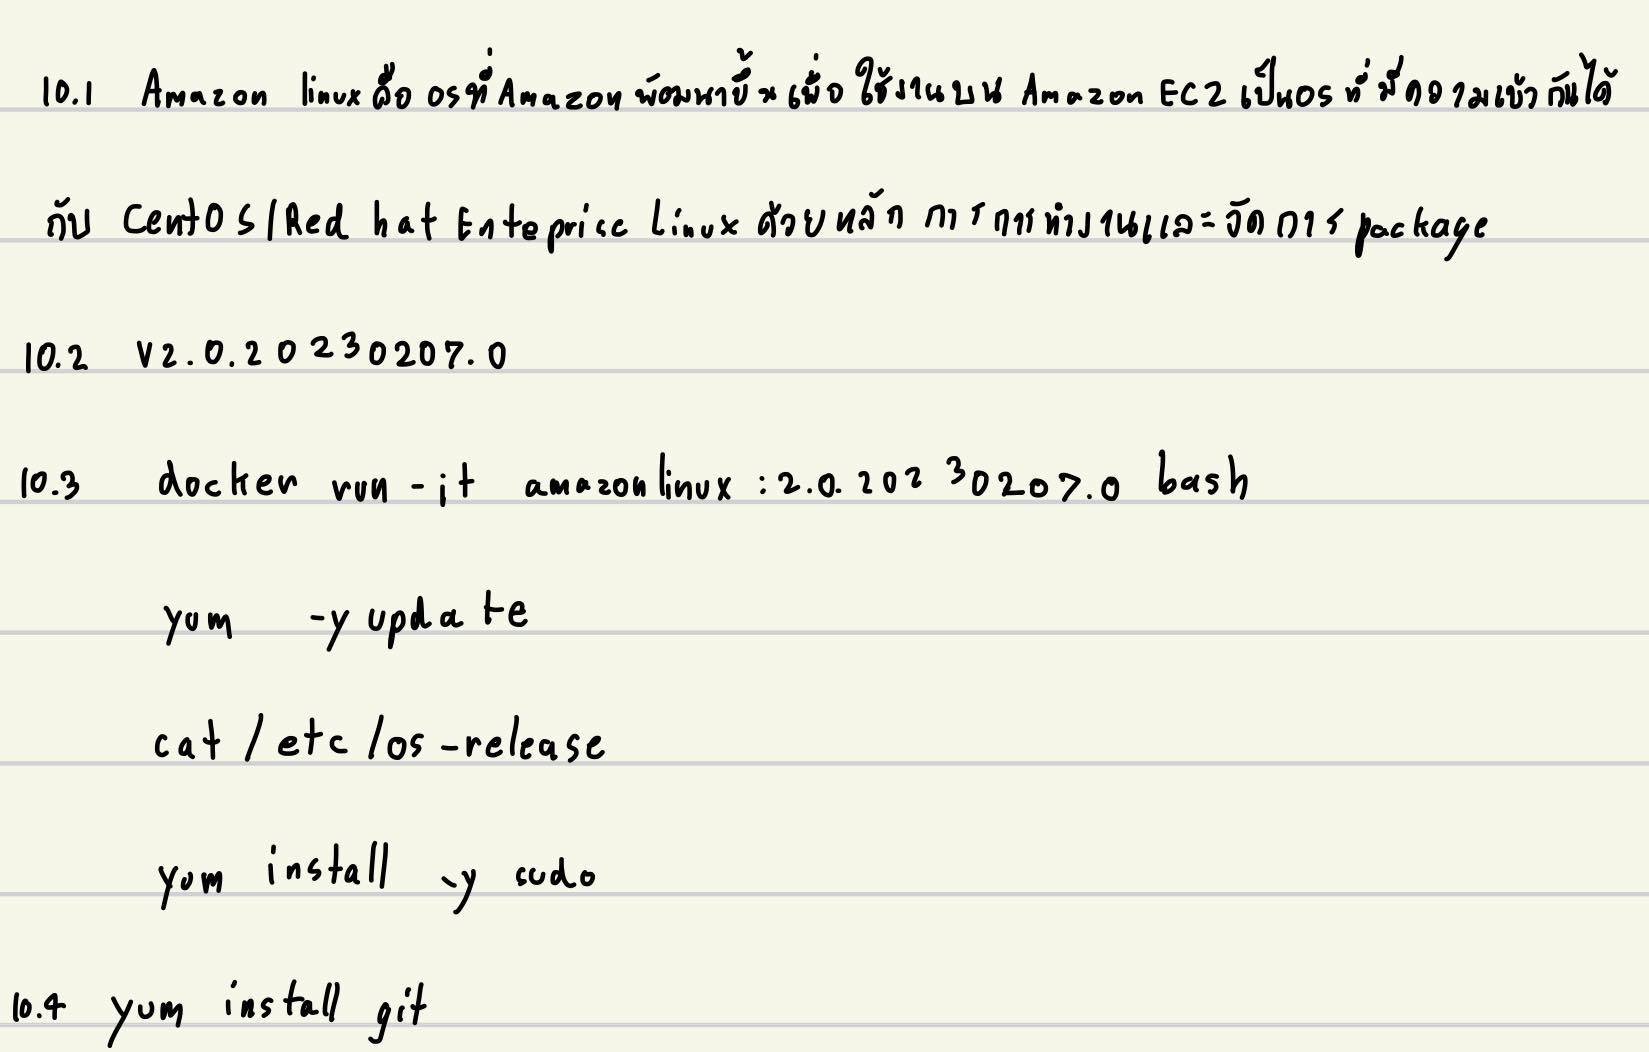 10.1 Amazon linux คือ OS ที่ Amazon พัฒนาขึ้นเพื่อใช้งานบน Amazon EC2 เป็น OS ที่มีความเข้ากันได้
กับ CentOS/Red hat Enteprise Linux ด้วยหลักการการทำงานและจัดการ package
10.2 V2.0.20230207.0
10.3 docker run -it amazonlinux:2.0.20230207.0 bash
yum -y update
cat /etc/os-release
yum install -y sudo
10.4 yum install git